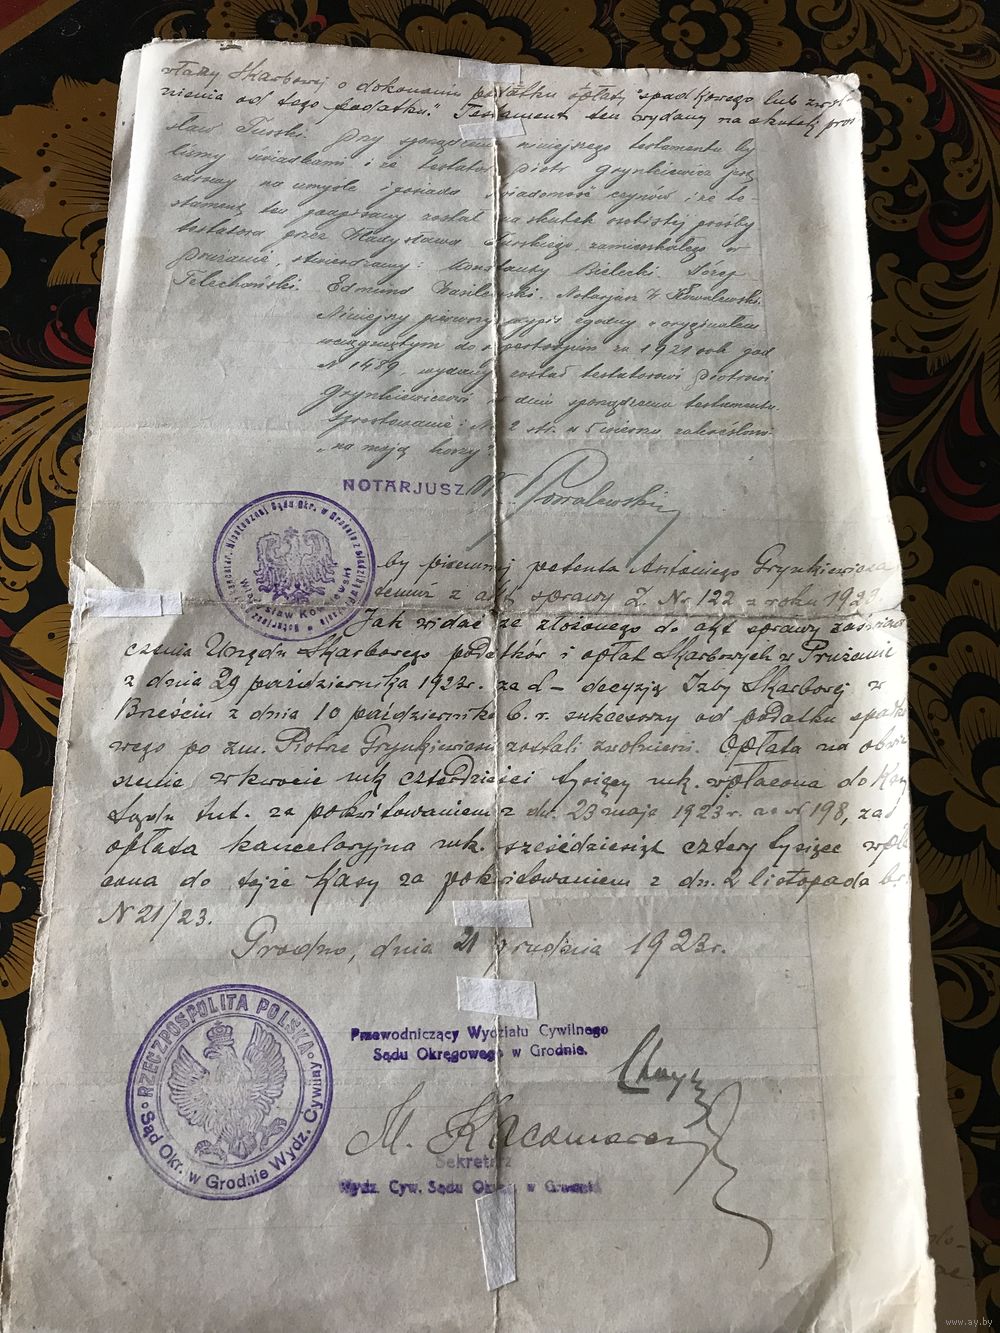 władzy Skarbowej o dokonaniu podatku opłaty spadkowego lub zwol-
nienia od tego podatku." Testament ten wydany na skutek proś
sław Turski. Przy sporządzeniu niniejszego testamentu by
liśmy świadkami i że testator Piotr Grynkiewicz jest
zdrowy na umyśle i posiada świadomość czynów i że te-
stament ten podpisany został na skutek osobistej prośby
testatora przez Władysława Turskiego, zamieszkałego w
Prużanie, stwierdzamy. Konstanty Bielecki. Józef
Telechański. Edmund Wasilewski. Notarjusz W. Kowalewski.
Niniejszy pierwszy wypis zgodny z oryginałem
wciągniętym do repertorjum za 1921 rok pod
N 1489, wydany został testatorowi Piotrowi
Grynkiewiczowi w dniu sporządzenia testamentu.
Sprostowanie: N 2 str. w 5 wierszu zakreślono
"na moją
NOTARJUSZ W. Kowalewski
by pisemnej petenta Antoniego Grynkiewicza
z akt sprawy Z. Nr. 122 z roku 1923
Jak widać ze złożonego do akt sprawy zaświad
czenia Urzędu Skarbowego podatków i opłat Skarbowych w Prużanie
z dnia 29 października 1923r. za L – decyzją Izby Skarbowej w
Brześciu z dnia 10 października b. r. sukcesorzy od podatku spadko
wego po zm. Piotrze Grynkiewiczu zostali zwolnieni. Opłata na obwie
szczenie w kwocie mk czterdzieści tysięcy mk. wpłacona do Kasy
Sądu tut. za pokwitowaniem z dn. 23 maja 1923 r. za N 198, zaś
opłata kancelaryjna mk. sześćdziesiąt cztery tysiące wpła
cona do tejże Kasy za pokwitowaniem z dn. 2 listopada b.r.
N 21/23.
Grodno, dnia 21 grudnia 1923r.
RZECZPOSPOLITA POLSKA
Sąd Okr. w Grodnie Wydz. Cywilny
Przewodniczący Wydziału Cywilnego
Sądu Okręgowego w Grodnie.
Sekretarz
Wydz. Cyw. Sądu Okr. w Grodnie
www.ay.by